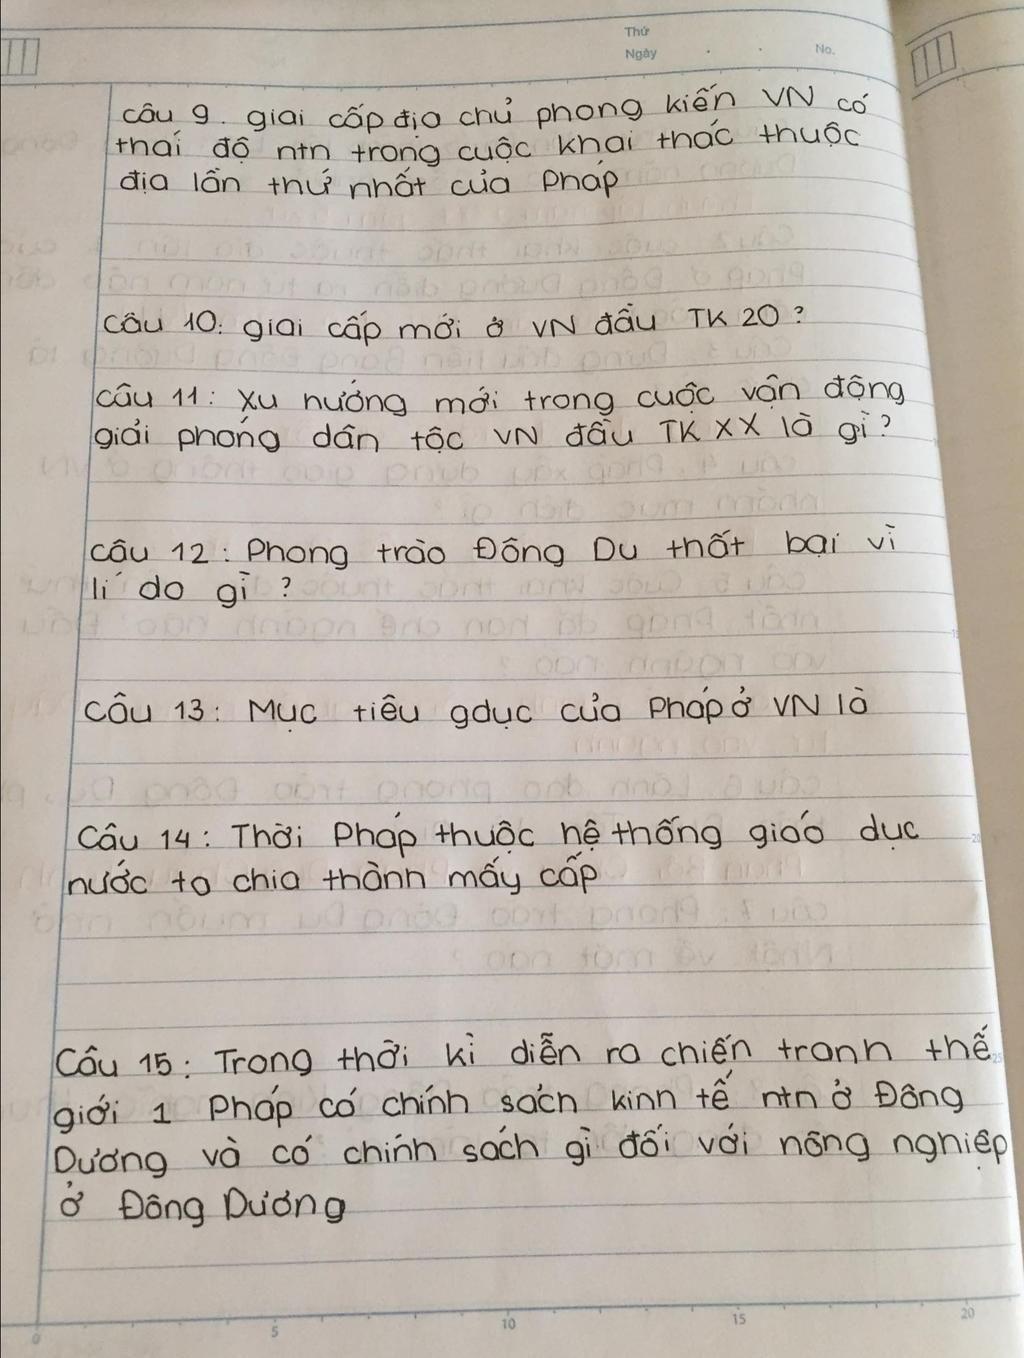 Thứ
Ngày
No.
câu 9. giai cấp địa chủ phong kiến VN có
thái độ ntn trong cuộc khai thác thuộc
địa lần thứ nhất của Pháp
câu 10: giai cấp mới ở VN đầu TK 20?
câu 11: Xu hướng mới trong cuộc vận động
giải phóng dân tộc VN đầu TK XX là gì?
câu 12: Phong trào Đông Du thất bại vì
lí do gì?
câu 13: Mục tiêu gdục của Pháp ở VN là
Câu 14: Thời Pháp thuộc hệ thống giáo dục
nước ta chia thành mấy cấp
Câu 15: Trong thời kì diễn ra chiến tranh thế
giới 1 Pháp có chính sách kinh tế ntn ở Đông
Dương và có chính sách gì đối với nông nghiệp
ở Đông Dương
0 5 10 15 20